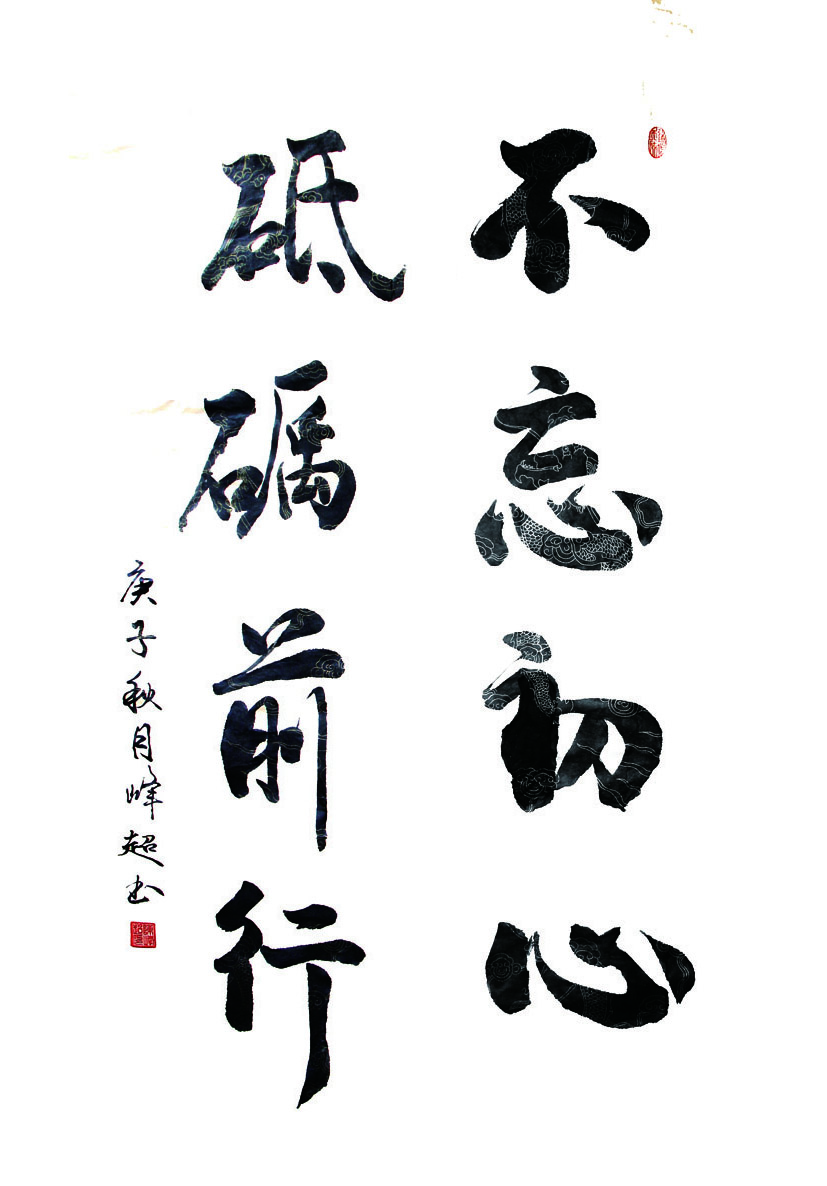 不忘初心
砥礪前行
庚子秋月峰超书